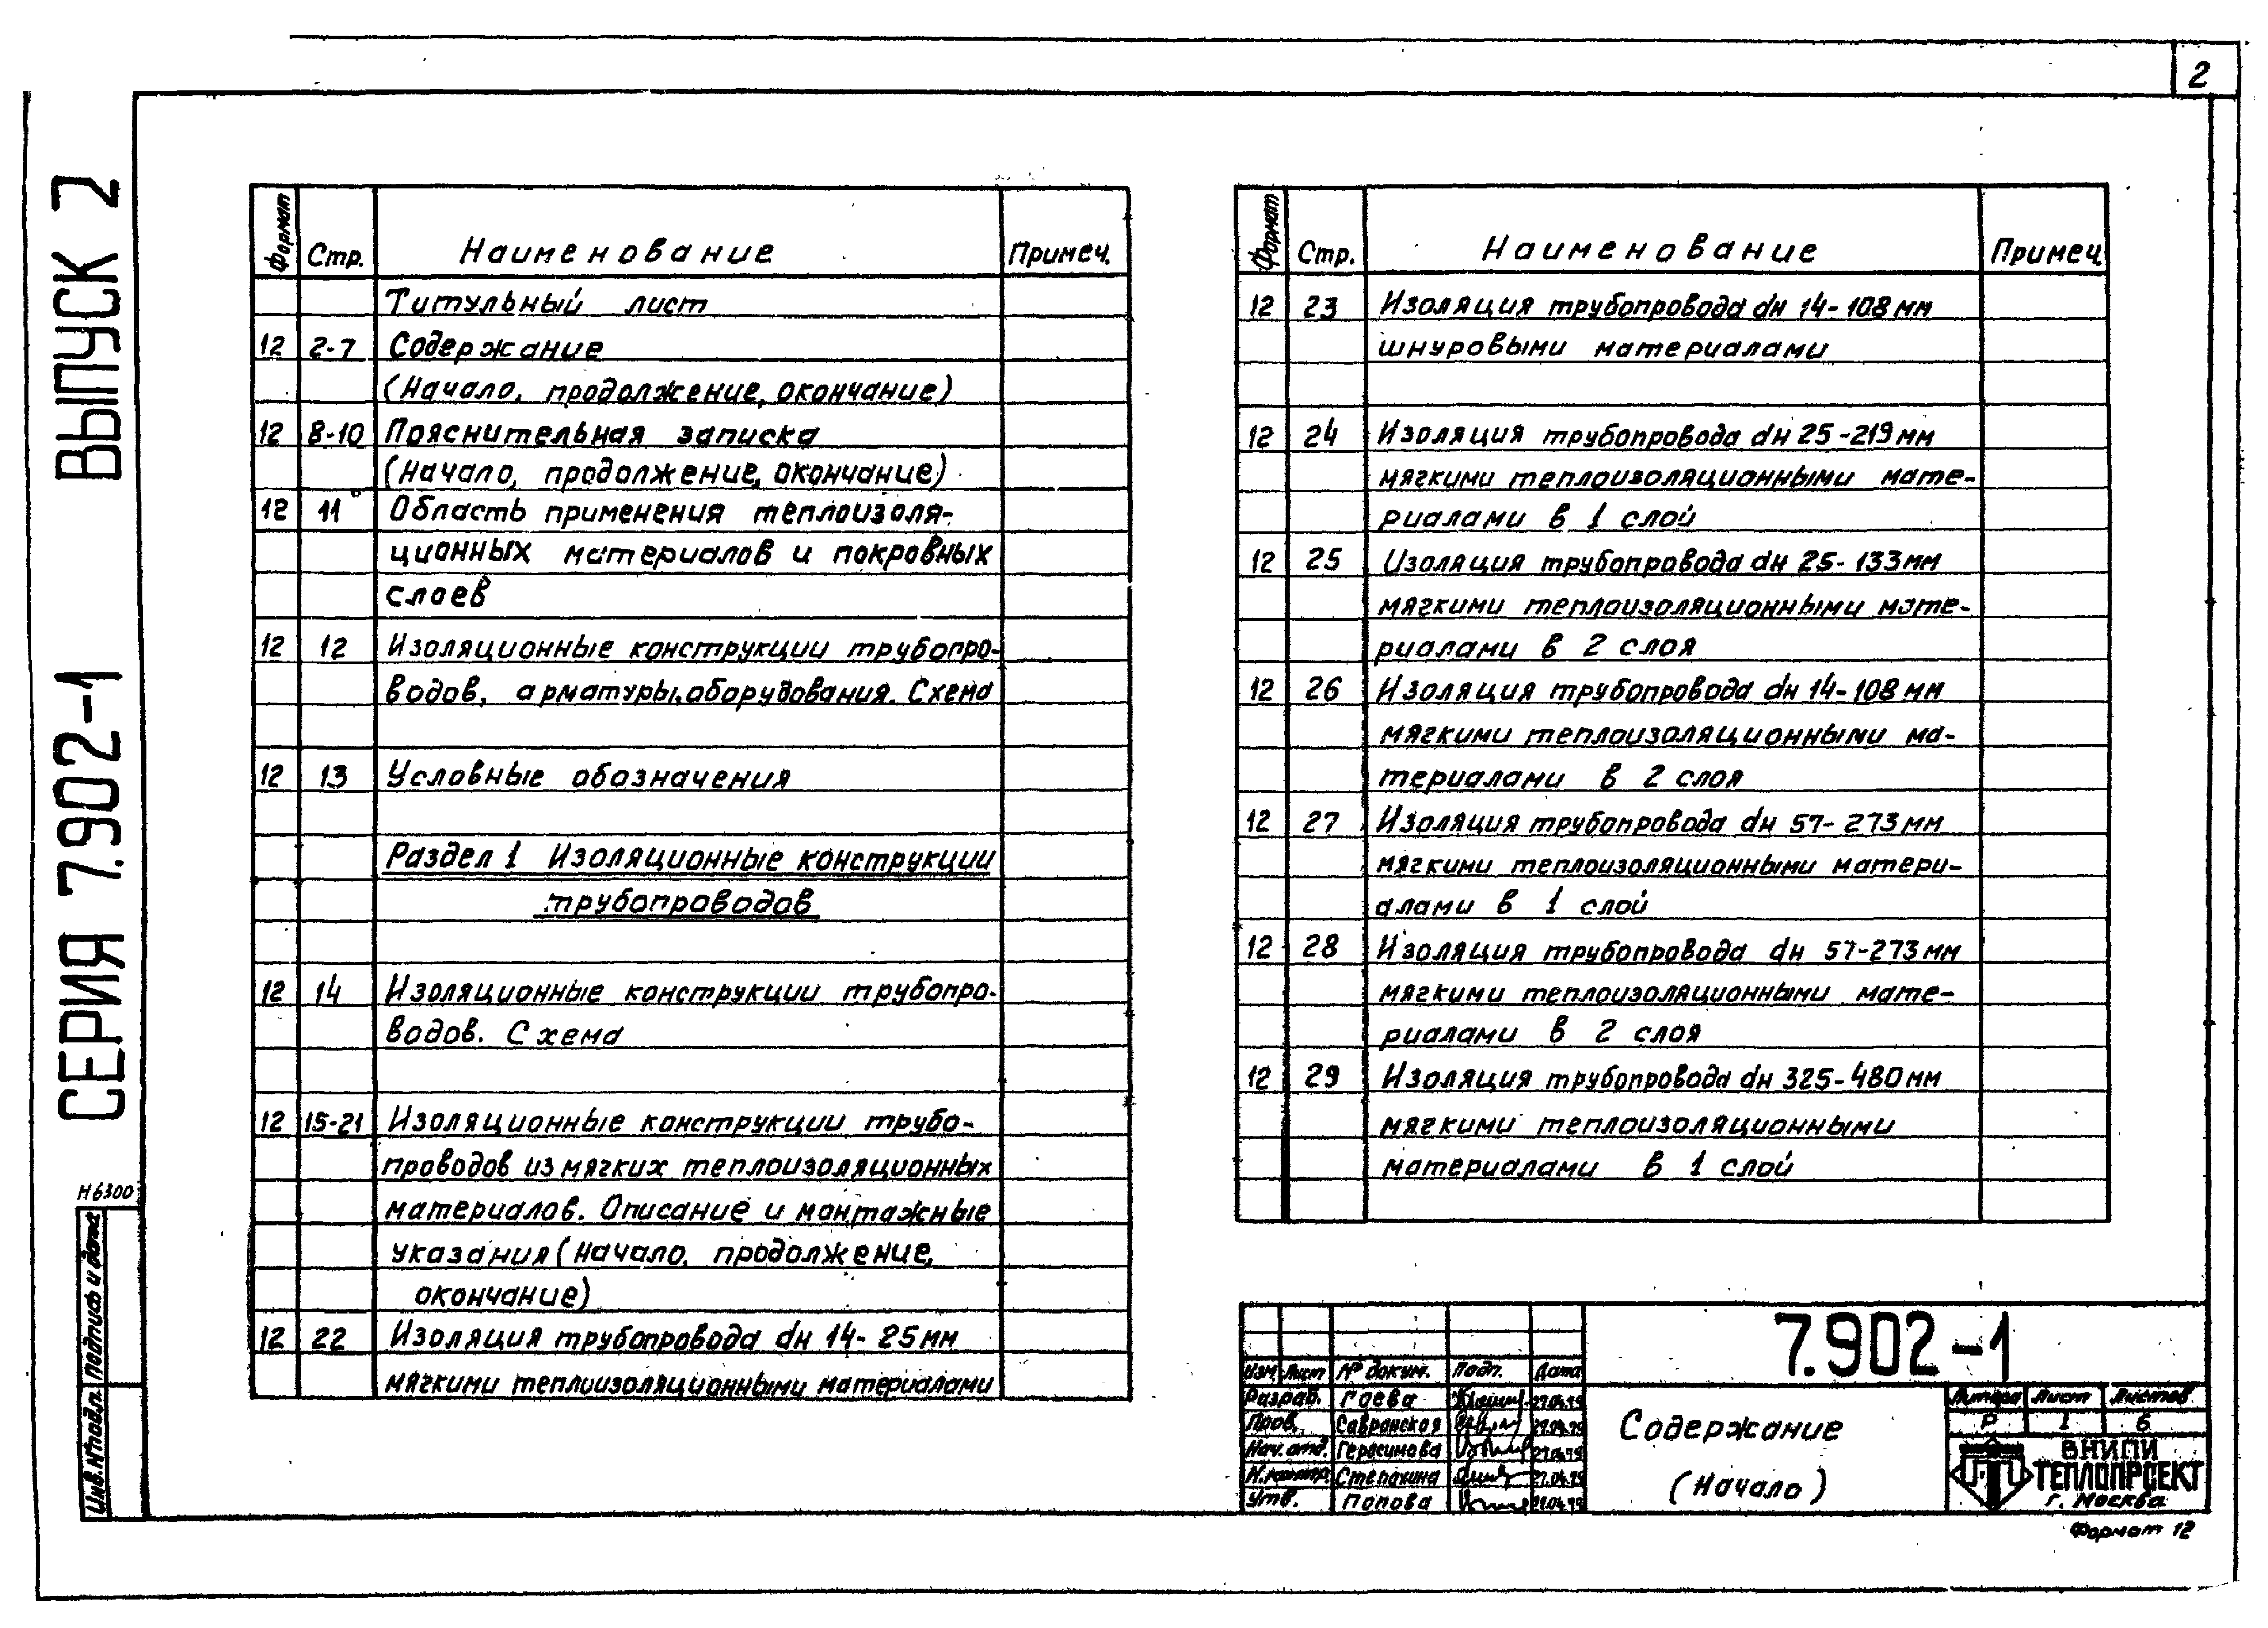 2
СЕРИЯ 7.902-1 ВЫПУСК 2
Формат Стр. Наименование Примеч.
Титульный лист
12 2-7 Содержание
(Начало, продолжение, окончание)
12 8-10 Пояснительная записка
(Начало, продолжение, окончание)
12 11 Область применения теплоизоля-
ционных материалов и покровных
слоев
12 12 Изоляционные конструкции трубопро-
водов, арматуры, оборудования. Схема
12 13 Условные обозначения
Раздел 1 Изоляционные конструкции
трубопроводов
12 14 Изоляционные конструкции трубопро-
водов. Схема
12 15-21 Изоляционные конструкции трубо-
проводов из мягких теплоизоляционных
материалов. Описание и монтажные
указания (Начало, продолжение,
окончание)
12 22 Изоляция трубопровода dн 14-25 мм
мягкими теплоизоляционными материалами
Формат Стр. Наименование Примеч.
12 23 Изоляция трубопровода dн 14-108 мм
шнуровыми материалами
12 24 Изоляция трубопровода dн 25-219 мм
мягкими теплоизоляционными мате-
риалами в 1 слой
12 25 Изоляция трубопровода dн 25-133 мм
мягкими теплоизоляционными мате-
риалами в 2 слоя
12 26 Изоляция трубопровода dн 14-108 мм
мягкими теплоизоляционными ма-
териалами в 2 слоя
12 27 Изоляция трубопровода dн 57-273 мм
мягкими теплоизоляционными матери-
алами в 1 слой
12 28 Изоляция трубопровода dн 57-273 мм
мягкими теплоизоляционными мате-
риалами в 2 слоя
12 29 Изоляция трубопровода dн 325-480 мм
мягкими теплоизоляционными
материалами в 1 слой
Н6300
Инв.№подл. Подпись и дата
7.902-1
Изм. Лист № докум. Подп. Дата
Разраб. Гаева
Пров. Савранская
Нач. отд. Герасимова
Н.контр. Степахина
Утв. Попова
Содержание
(Начало)
Литера Лист Листов
Р 1 6
ВНИПИ
ТЕПЛОПРОЕКТ
г. Москва
Формат 12